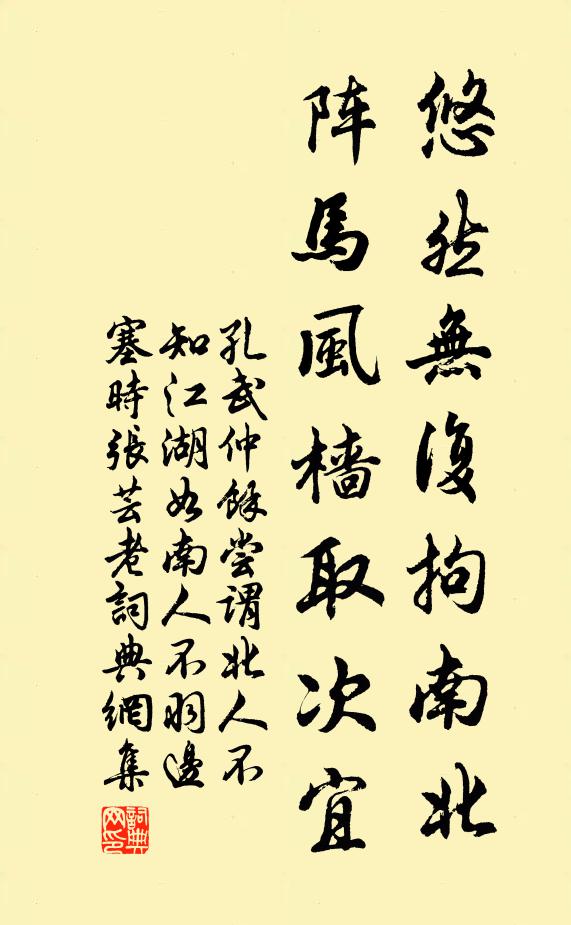 悠然無復拘南北
阵馬風檣取次宜
孔武仲餘嘗謂北人不
知江湖如南人不羽邊
塞時張芸老詞典網集
詞典
网印